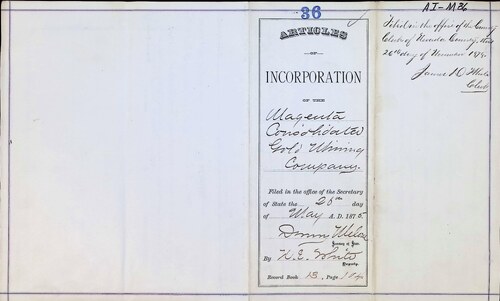 36
ARTICLES
OF
INCORPORATION
OF THE
Magenta
Consolidated
Gold Mining
Company.
Filed in the office of the Secretary
of State the 25th day
of May A. D. 1875
Drury Melone
Secretary of State.
By
Deputy.
Record Book 13, Page
A I - M 26
Filed in the office of the County
Clerk of Nevada County, this
26th day of November 187
James
Clerk